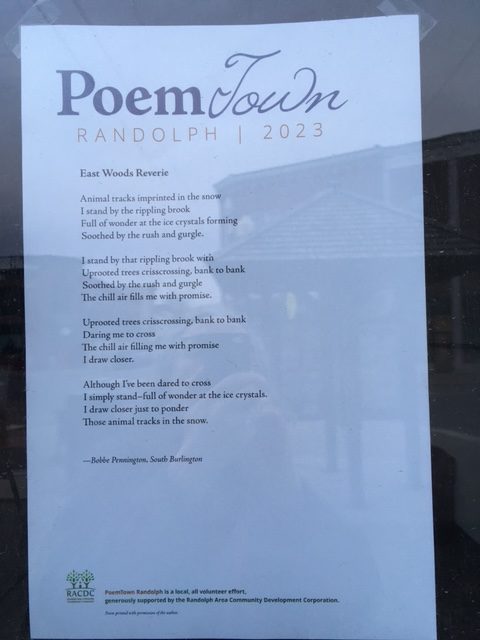 PoemTown
RANDOLPH | 2023
East Woods Reverie
Animal tracks imprinted in the snow
I stand by the rippling brook
Full of wonder at the ice crystals forming
Soothed by the rush and gurgle.
I stand by that rippling brook with
Uprooted trees crisscrossing, bank to bank
Soothed by the rush and gurgle
The chill air fills me with promise.
Uprooted trees crisscrossing, bank to bank
Daring me to cross
The chill air filling me with promise
I draw closer.
Although I've been dared to cross
I simply stand–full of wonder at the ice crystals.
I draw closer just to ponder
Those animal tracks in the snow.
—Bobbe Pennington, South Burlington
RACDC
PoemTown Randolph is a local, all volunteer effort,
generously supported by the Randolph Area Community Development Corporation.
Poem printed with permission of the author.